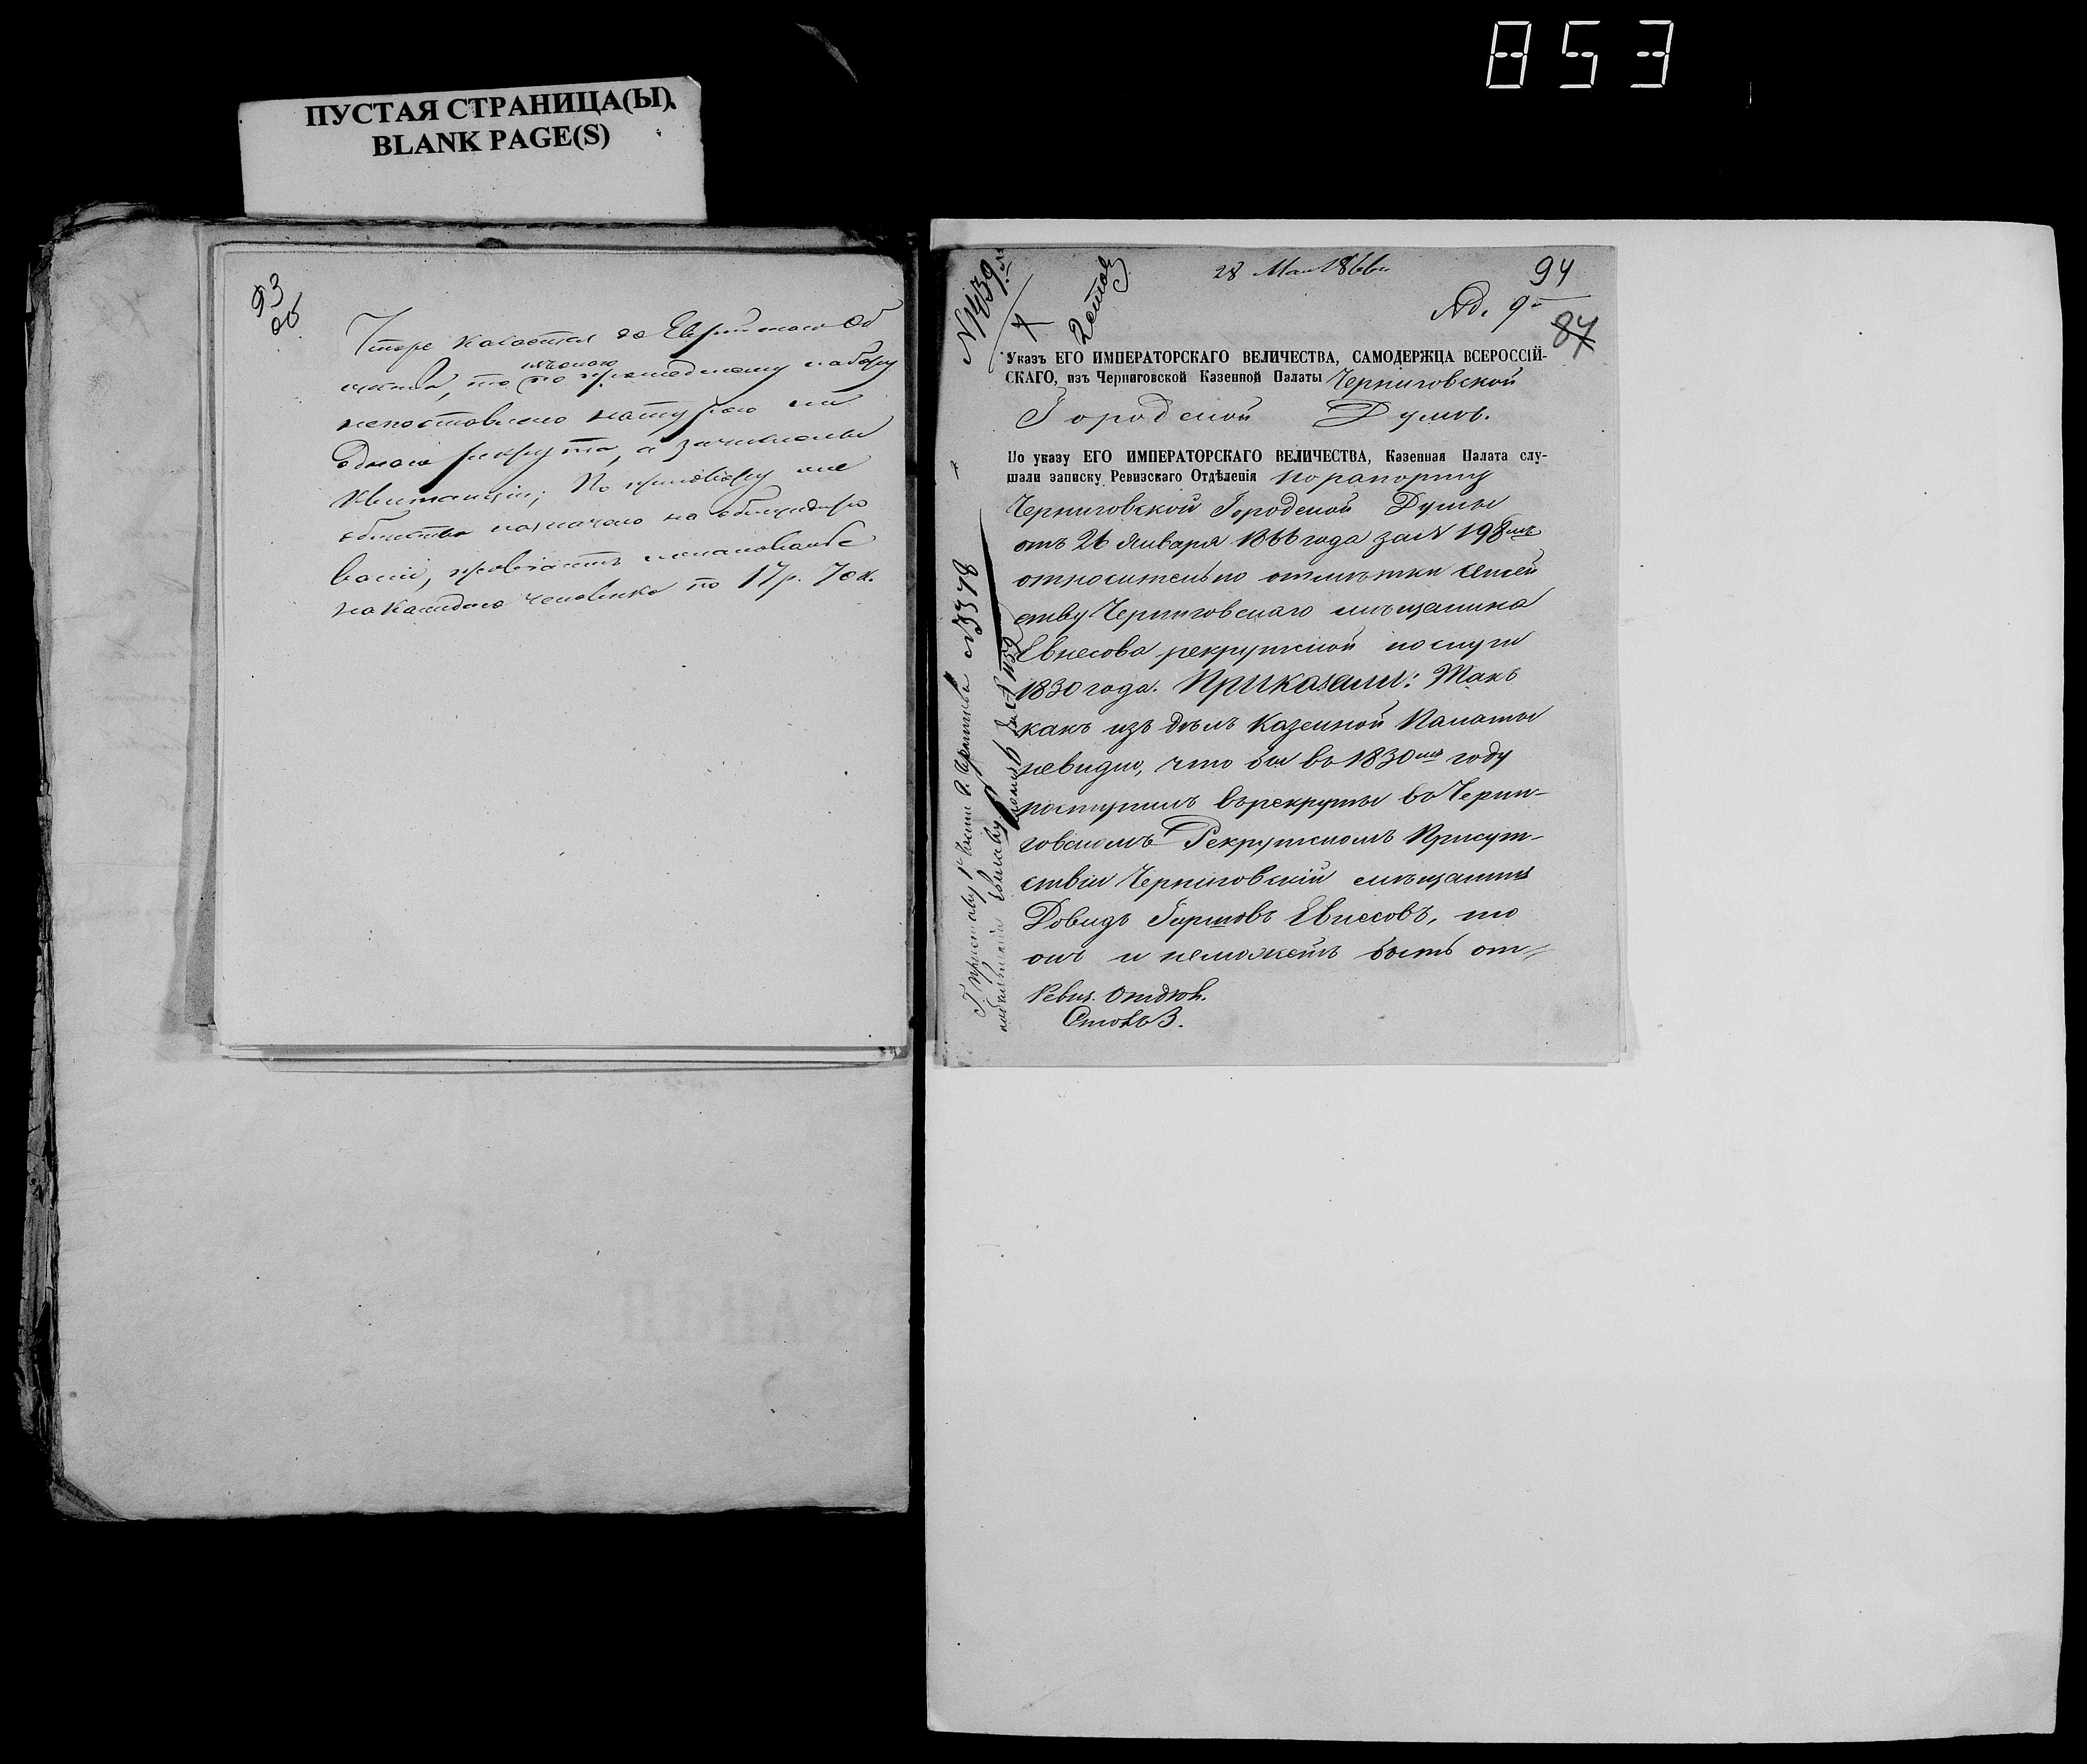 853
ПУСТАЯ СТРАНИЦА(Ы)
BLANK PAGE(S)
93
об
касается до Еврейскаго Об
щества, то по прошедшему набору
непоставлено натурою ни
Однаго рекрута, а зачислены
Квитанціи; По приговору же
общества назначено на обмундиро
ваніе, провіантъ и жалованье
на каждаго человека по 17 р. 70 к.
28 Мая 1866 г.
94
87
№ 1439
Указъ ЕГО ИМПЕРАТОРСКАГО ВЕЛИЧЕСТВА, САМОДЕРЖЦА ВСЕРОССІЙ-
СКАГО, изъ Черниговской Казенной Палаты Черниговской
Городской Думѣ.
По указу ЕГО ИМПЕРАТОРСКАГО ВЕЛИЧЕСТВА, Казенная Палата слу-
шали записку Ревизскаго Отдѣленія по рапорту
Черниговской Городской Думы
отъ 26 Января 1866 года за № 198мъ
относительно отмѣтки семей
ству Черниговскаго мѣщанина
Евнесова рекрутской послуги
1830 года. Приказали: Такъ
какъ изъ дѣлъ Казенной Палаты
невидно, что бы въ 1830мъ году
поступилъ въ рекруты въ Черни-
говскомъ Рекрутскомъ Присут-
ствіи Черниговскій мѣщанинъ
Довидъ Гиршовъ Евнесовъ, то
онъ и неможетъ быть от-
Ревиз. Отдѣл.
Столъ 3.
Г. приставу 1й части г. Чернигова № 3378